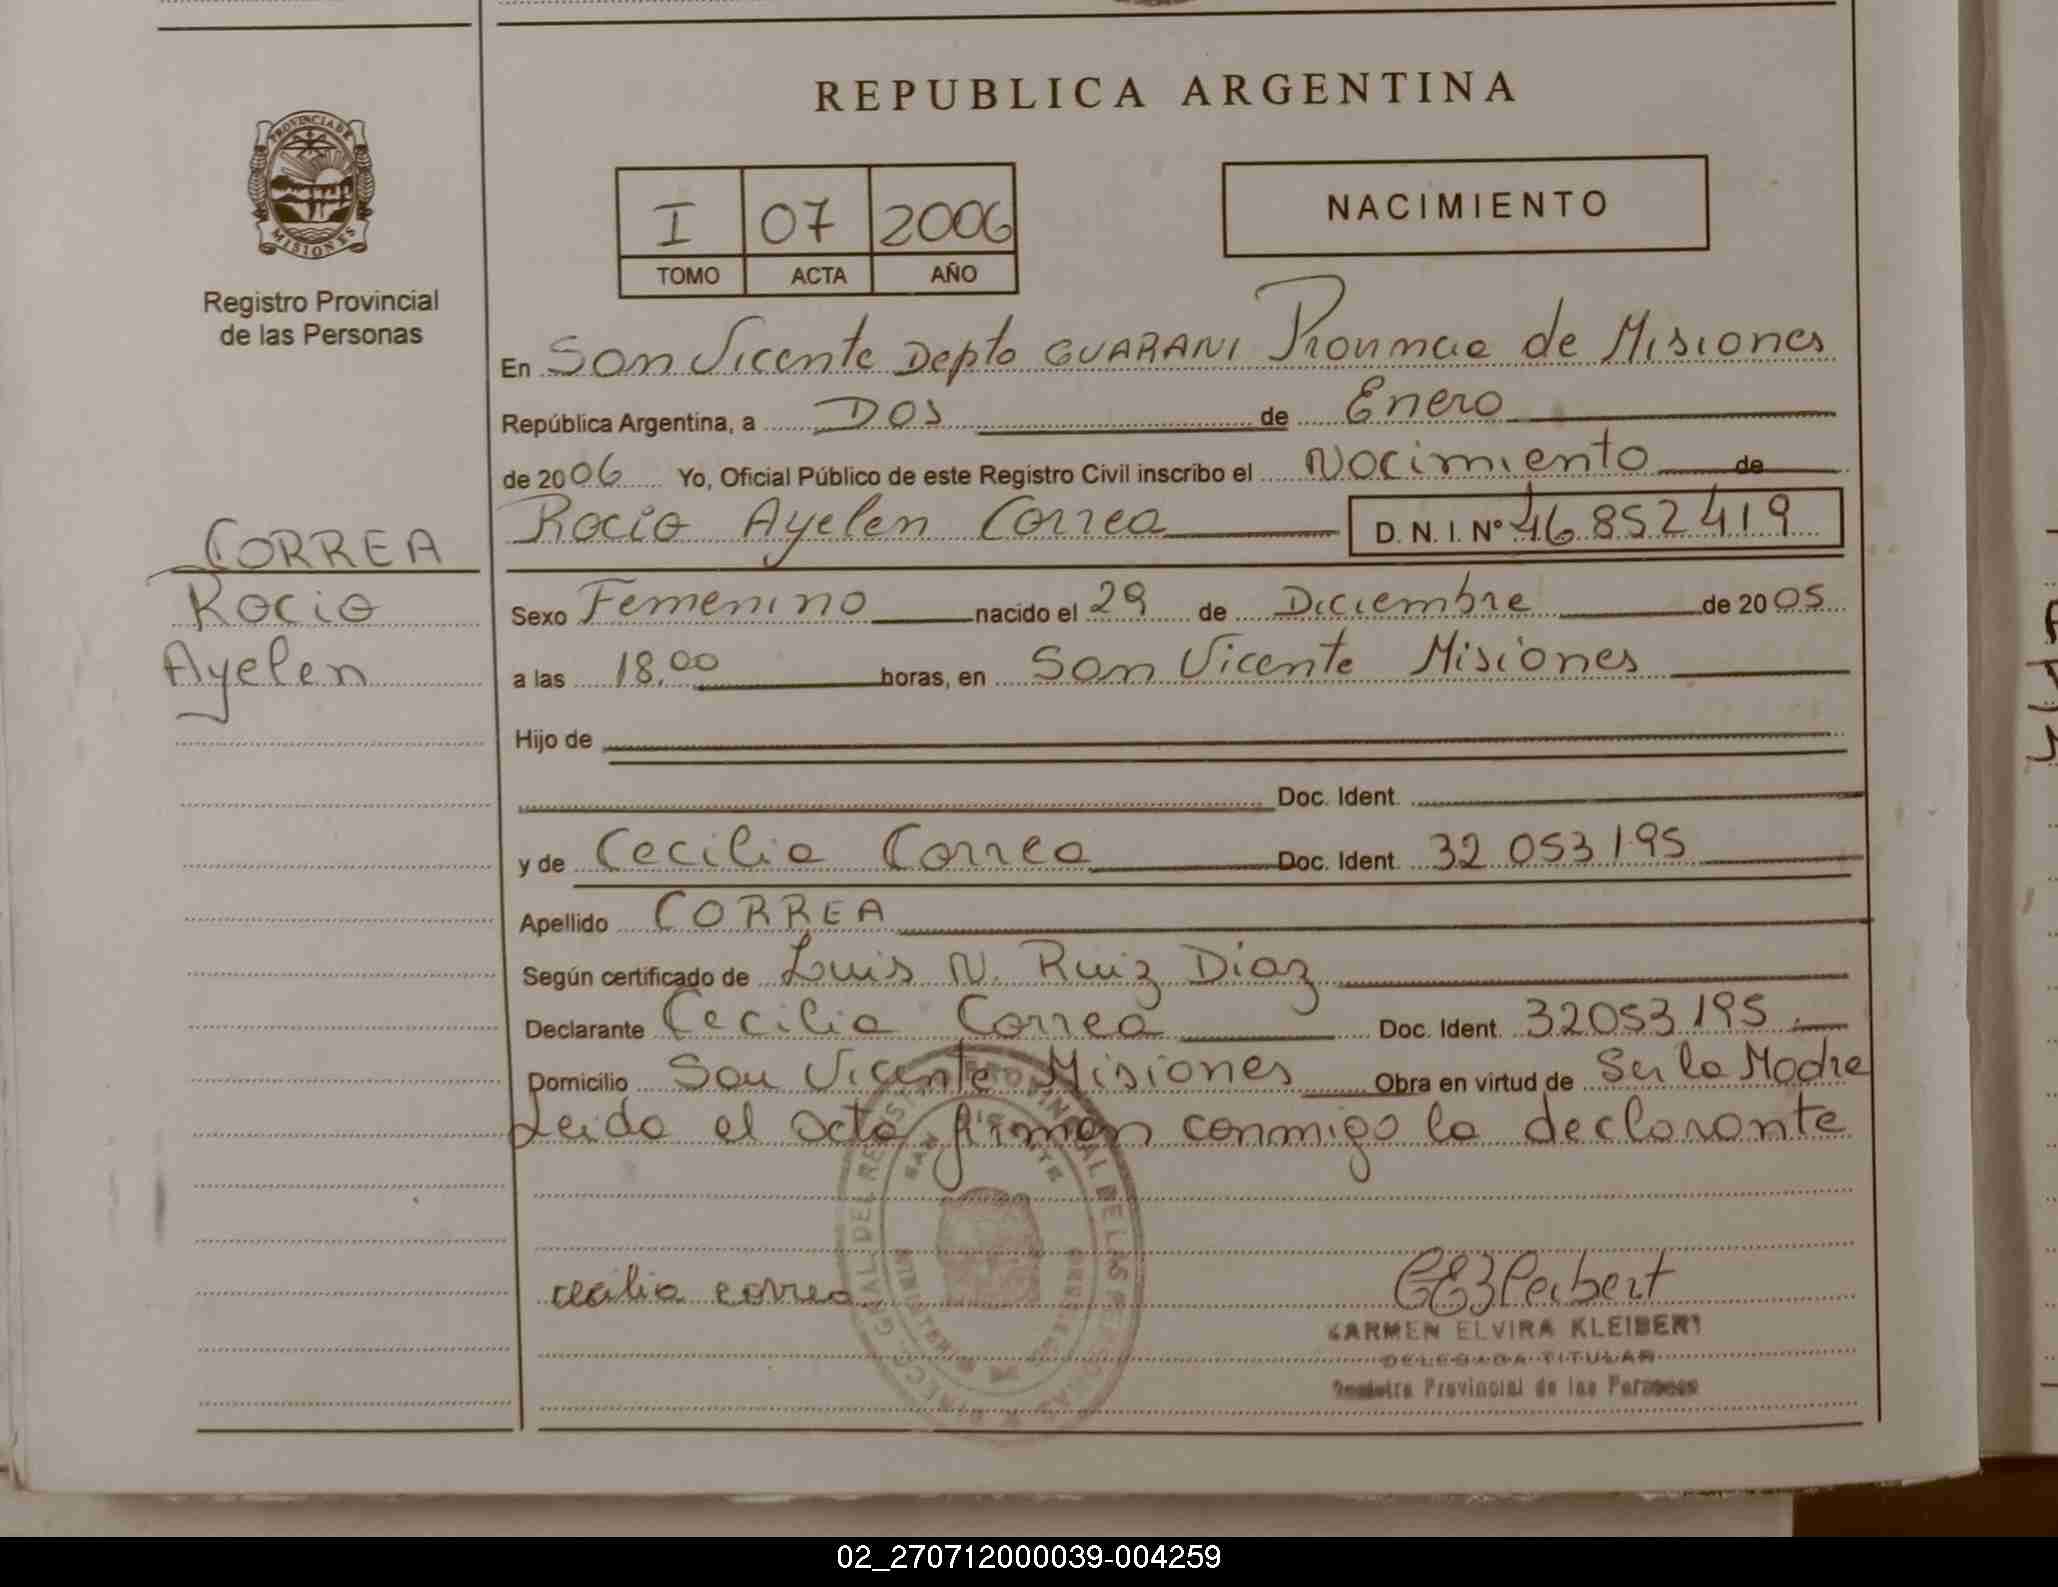 REPUBLICA ARGENTINA
PROVINCIA DE
MISIONES
Registro Provincial
de las Personas
I 07 2006
TOMO ACTA AÑO
NACIMIENTO
En San Vicente Depto GUARANI Provincia de Misiones
República Argentina, a Dos de Enero
de 2006 Yo, Oficial Público de este Registro Civil inscribo el Nacimiento de
Rocio Ayelen Correa D. N. I. Nº 46 852 419
CORREA
Rocio
Ayelen
Sexo Femenino nacido el 29 de Diciembre de 2005
a las 18.00 horas, en San Vicente Misiones
Hijo de
Doc. Ident.
y de Cecilia Correa Doc. Ident. 32 053 195
Apellido CORREA
Según certificado de Luis N. Ruiz Diaz
Declarante Cecilia Correa Doc. Ident. 32053195.
Domicilio San Vicente Misiones Obra en virtud de Ser la Madre
Leida el acta firman conmigo la declarante
cecilia correa
CEKleibert
CARMEN ELVIRA KLEIBERT
DELEGADA TITULAR
Registro Provincial de las Personas
02_270712000039-004259